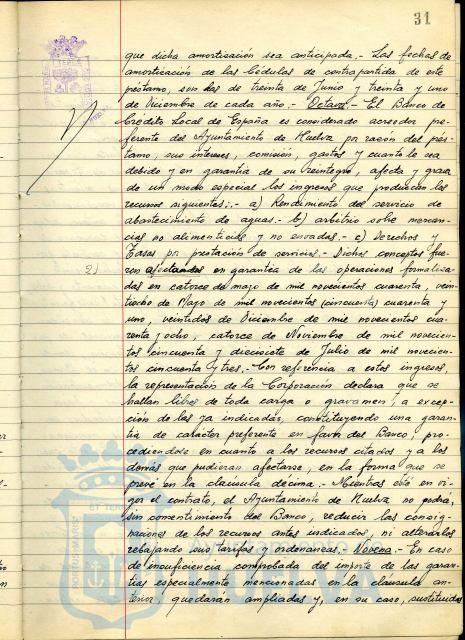 31
que dicha amortización sea anticipada.- Las fechas de
amortización de las Cédulas de contrapartida de este
préstamo, son las de treinta de Junio y treinta y uno
de Diciembre de cada año.- Octava.- El Banco de
Crédito Local de España es considerado acreedor pre-
ferente del Ayuntamiento de Huelva por razón del prés-
tamo, sus intereses, comisión, gastos y cuanto le sea
debido y en garantía de su reintegro, afecta y grava
de un modo especial los ingresos que produzcan los
recursos siguientes:.- a) Rendimiento del servicio de
abastecimiento de aguas.- b) arbitrio sobre mercan-
cías no alimenticias y no envadas.- c) Derechos y
Tasas por prestación de servicios.- Dichos conceptos fue-
ron afectados en garantía de las operaciones formaliza-
das en catorce de mazo de mil novecientos cuarenta, vein-
tiocho de Mayo de mil novecientos (cincuenta) cuarenta y
uno, veintidos de Diciembre de mil novecientos cua-
renta y ocho, catorce de Noviembre de mil novecien-
tos cincuenta y diecisiete de Julio de mil novecien-
tos cincuenta y tres.- Con referencia a estos ingresos,
la representación de la Corporación declara que se
hallan libres de toda carga o gravamen, a excep-
ción de las ya indicadas, constituyendo una garan-
tía de carácter preferente en favor del Banco, pro-
cediendose en cuanto a los recursos citados y a los
demás que pudieran afectarse, en la forma que se
prevé en la clausula décima.- Mientras esté en vi-
gor el contrato, el Ayuntamiento de Huelva no podrá,
sin consentimiento del Banco, reducir las consig-
naciones de los recursos antes indicados, ni alterarlos
rebajando sus tarifas y ordenanzas. Novena.- En caso
de insuficiencia comprobada del importe de las garan-
tías especialmente mencionadas en la clausula an-
terior, quedaran ampliadas y, en su caso, sustituidas